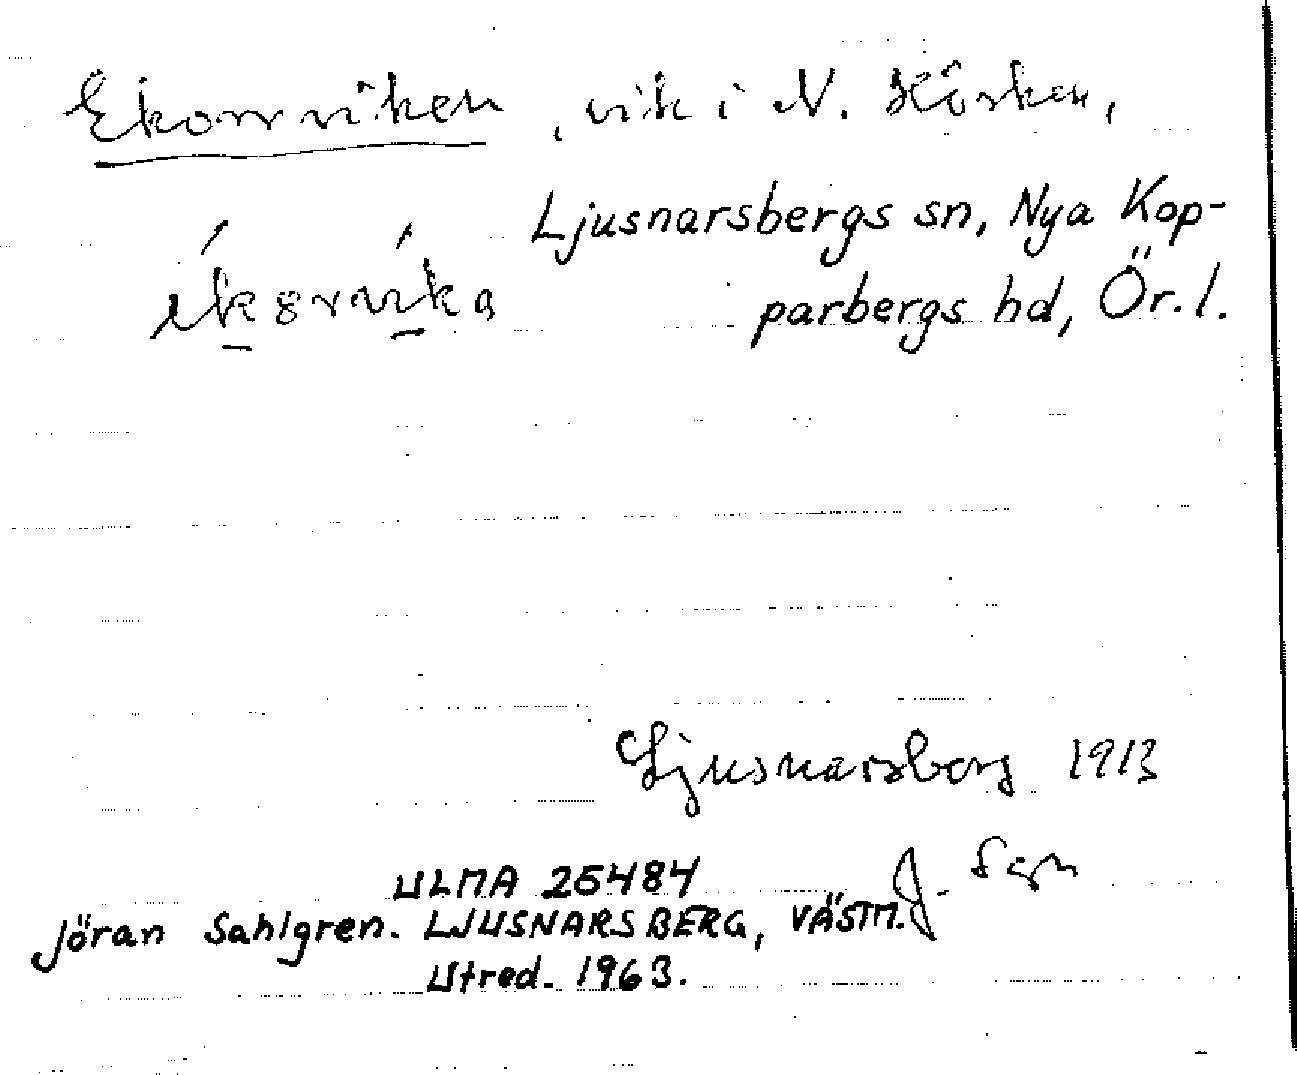 Ekorrviken, vik i N. Hörken,
Ljusnarsbergs sn, Nya Kop-
parbergs hd, Ör. l.
Ljusnarsberg 1913
J. Sgn
ULMA 25484
Jöran Sahlgren. LJUSNARSBERG, VÄSTM.
Utred. 1963.